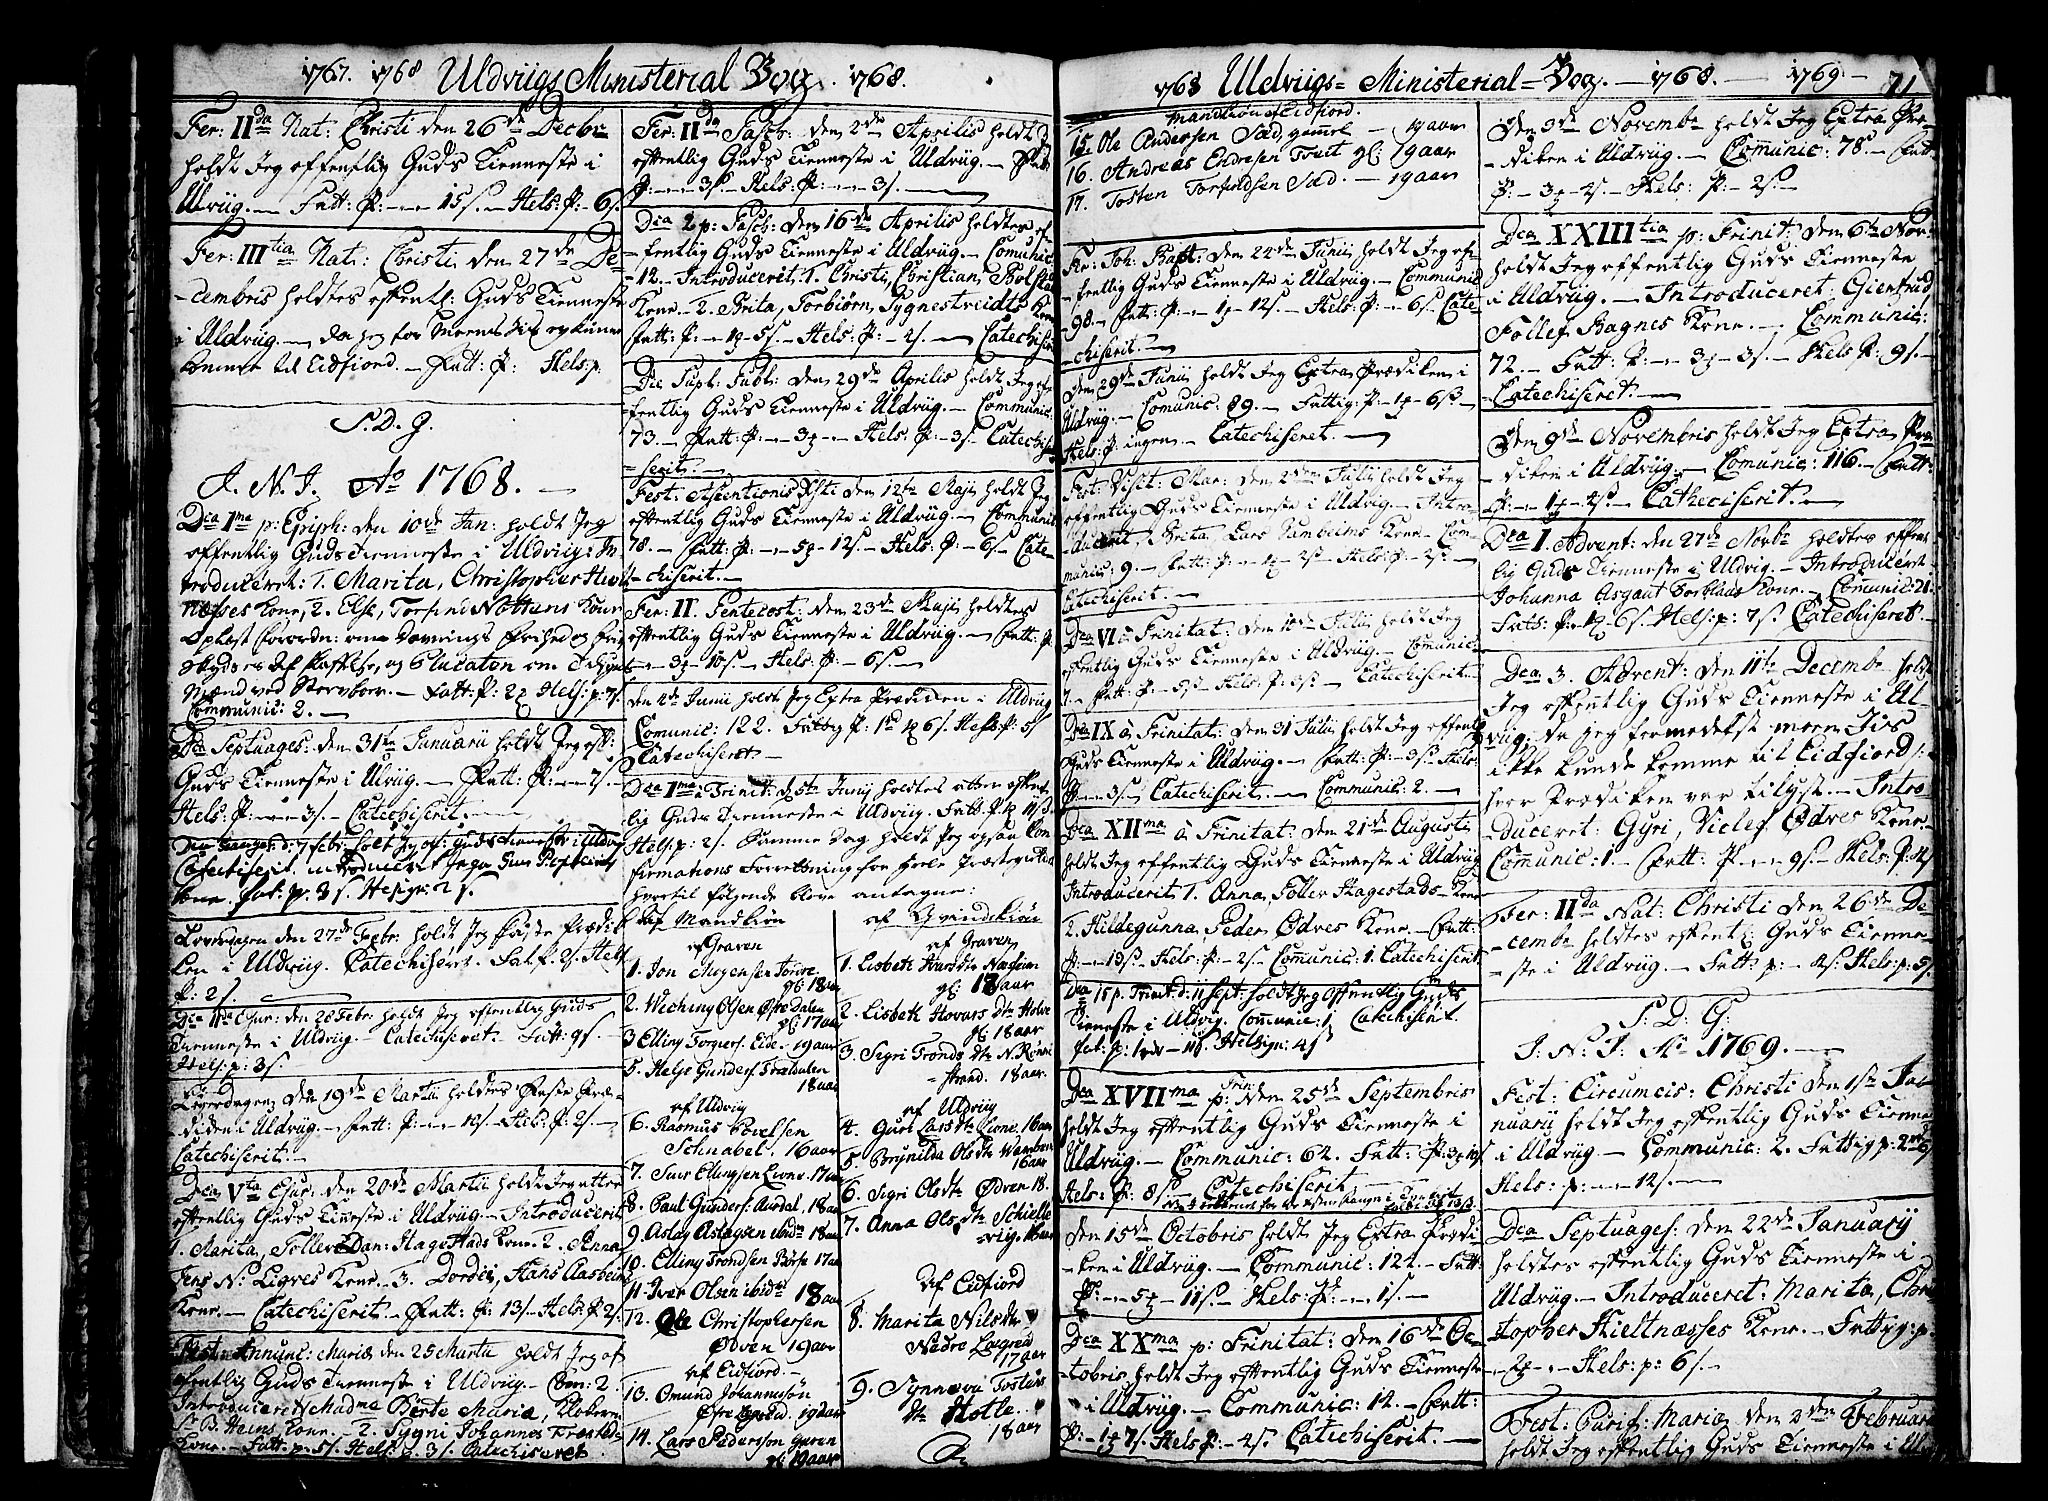 1767. 1768 Uldviigs Ministerial Bog. 1768.
Fer: IIda Nat: Christi den 26de Decbr:
holdt Jeg offentlig Guds Tienneste i
Ulvig. — Fatt: P: — 15 s. — Hels: P: 6 s.
Fer: IIItia Nat: Christi den 27de De-
cembris holdtes offentl: Guds Tienneste
i Uldvug. — da jeg for Meenes Jis ey kunne
komme til Eidfiord. — Fatt: P: Hels: p:
S. D. G.
J. N. J. Ao 1768. —
Dca 1ma p: Epiph: den 10de Jan: holdt Jeg
offentlig Guds Tienneste i Uldviig: In-
troduceret: 1. Marita, Christopher
Næsses Kone, 2. Else, Torfind Nottuns Kone
Oplæst Forordn: om
og Placaten om
ved — Fatt: P: 2 Hels: p: 7 s.
Communic: 2. —
Dca Septuages: den 31te Januarii holdt Jeg off:
Guds Tienneste i Ulviig. — Fatt: P: — 7 s —
Hels: P: — 3 s. — Catechiserit. —
7 Febr: holt Jeg off: Guds Tienneste i Uldvig
Catechiserit, introduceret
kone. fat: p: 3 s. 2 s.
Løverdagen den 27de Febr: holdt Jeg Faste Prædi-
ken i Uldviig. Catechiseret. Fat. P. 2 s. Hels
P: 2 s.
den 28 Febr: holdt Jeg offentlig Guds
Tienneste i Uldvig. — Catechiseret. Fatt: 9 s. —
Hels: p: 3 s.
Løverdagen den 19de Martii holdtes Faste Præ-
diken i Uldviig. — Fatt: P: — 12 s. — Hels: P: 2 s. —
Catechiserit. —
Dca Vta Qvar: den 20de Martii holdt Jeg atter
offentlig Guds Tienneste i Uldviig. — Introducerit
1. Marita, Tollev Dan: Hagestads Kone. 2. Anna
Jens N: Ligres Kone. 3. Dordei, Hans Aasheims
Kone. — Catechiserit. — Fatt: P: 13 s. — Hels: P: 2 s.
Fest: Annunc: Mariæ den 25 Martii holdt Jeg of-
fentlig Guds Tienneste i Uldvig. — Com: 2.
Introduceret Madme Berte Maria, Kloker
Heins Kone. — 2. Sygni Johannes
Kone. — Fatt: p: 5 s. Hels: p: 3 s. Catechiseret
Fer: IIda Pasch: den 2de Aprilis holdt J
offentlig Guds Tienneste i Uldviig. — Fatt
P: — 3 s Hels: P: — 3 s. —
Dca 2 p: Pasch: den 16de Aprilis holdtes of-
fentlig Guds Tienneste i Uldviig. — Comunic:
12. — Introduceret: 1. Christi, Christian Bolstad
Kone. — 2. Brita, Torbiørn, Sygnestveidts Kone
Fatt: P: — 1 — 5 s. — Hels: P: — 2 s. — Catechiserit
den 29de Aprilis holdt Jeg of-
fentlig Guds Tienneste i Uldviig. — Communic:
73. — Fatt: P: — 3 — Hels: P: — 3 s. Catechi-
serit. —
Fest: Ascentionis Xsti den 12te Maji holdt Jeg
offentlig Guds Tienneste i Uldviig. — Communic
78. — Fatt: P: — 5 — 12 s. — Hels: P: — 6 s. Cate-
chiserit. —
Fer: II Pentecost: den 23de Maji holdtes
offentlig Guds Tienneste i Uldviig. — Fatt: P
— 3 — 10 s. — Hels: P: — 6 s. —
den 4de Junii holdt Jeg Extra Prædiken i Uldvig
Comunic: 122. Fattig P: 6 s. Hels: P: 5 s
Catechiseret. —
Dca 1ma Trinit: d. 5te Junij holdtes atter offent-
lig Guds Tienneste i Uldviig. Fatt: P.
Hels: p: 2 s. Samme Dag holdt Jeg ogsaa Con-
firmations Forretning for hele Præstegieldet
hvortil følgende bleve antagne:
af Mandkiøn
af Graven
1. Jon Mogensen
gl: 18 aar
2. Weching Olsen Øfre Dalen
gl: 17 aar
3 Elling Torgers: Eide. 19 aar
5. Helje Gunders: Trædalen
18 aar
af Uldvig
6. Rasmus Povelsen
Schnabel. 16 aar
7. Siur Ellingsen Lione 17 aar
8. Paul Gunders: Aurdal, 18 aar
9. Aslag Aslagsen ibidm 18 aar
10. Elling Trondsen Børse 17 aar
11. Iver Olsen ibidm 18 aar
12. Ole Christophersen
Ødven 19 aar
af Eidfiord. —
13. Omund Johannesøn
Øfre 19 aar
14. Lars Pedersøn Garen
gl: 19 aar
af Qvindekiøn
af Graven
1. Lisbeth Nesheim
gl: 18 aar
2. Lisbeth Hovars dtr Holve
gl: 18 aar
3. Segri Tronds dtr N. Røni-
strand. 18 aar.
af Uldvig
4. Guri Lars dtr Lione. 16 aar
5. Brynilda Ols dtr
16 aar
6. Segri Ols dtr Ødven 18.
7. Anna Ols dtr Schielle-
vig. 18 aar
af Eidfiord
8. Marita Nils dtr
Nedre Lægreid
17 aar
9. Synnevi Tostens
dtr Hotle
18 aar
1768 Uldviigs = Ministerial = Bog. — 1768. — 1769. — 71
Mandkiøn af Eidfiord.
15. Ole Andersen Sæd, gamel — 19 aar
16. Andreas Endresen Tveit gl: 19 aar
17. Tosten Torfindsen Sæd. — 19 aar
Fer: Joh: Bapt: den 24de Junii holdt Jeg of-
fentlig Guds Tienneste i Uldviig. — Communic
98. — Fatt: P: — 1 — 12 s. — Hels: P: — 6 s. Cate-
chiserit. —
den 29de Junii holdt Jeg Extra Prædiken i
Uldviig. — Comunic: 89. — Fattig: P: — 1 — 6 s —
Hels: P: ingen. — Catechiseret. —
Fest: Visit: Mar: den 2den Julii holdt Jeg
offentlig Guds Tienneste i Uldviig. — Intro-
ducerit, Brita, Lars Vambeims Kone. Com-
munic: 9. — Fatt: P: — 2 s — Hels: P: — 2 s. —
Catechiserit. —
Dca VI à Trinitat: den 10de Julii holdt Jeg
offentlig Guds Tienneste i Uldviig. — Comunic:
1. — Fatt: P: — 5 s Hels: P: 3 s. — Catechiserit —
Dca IX à Trinitat: den 31 Julii holdt Jeg offentlig
Guds Tienneste i Uldviig. — Fatt: P: — 3 s Hels:
P: — 3 s. Catechiserit. — Communic: 2. —
Dca XIIma à Trinitat: den 21de Augusti
holdt Jeg offentlig Guds Tienneste i Uldviig
Introducerit 1. Anna, Toller Hagestads Kone
2. Hildegunna, Peder Ødves Kone. — Fatt:
P: — 10 s — Hels: P: — 2 s Comunic: 1. Catechiserit
Dca 15 p. Trinit. d. 11 Sept: holdt Jeg Offentlig Guds
Tieneste i Uldvig. Communic: 1. Catechiseret.
fat: p: Helsign: 4 s
Dca XVIIma p: Trin: den 25de Septembris
holdt Jeg offentlig Guds Tienneste i
Uldviig. — Communic: 62. Fatt: P:
Hels: P: 8 s — Catechiserit —
den 15de Octobris holdt Jeg Extra Prædi-
ken i Uldviig. — Communic: 124. — Fatt:
P: — 5 — 11 s. — Hels: P: — 1 s. —
Dca XXma p: Trinitat: den 16de Oc-
tobris holdt Jeg offentlig Guds Tienneste
i Uldviig. — Communic: 14. — Fatt:
P: — 1 7 s. Hels: P: — 4 s. Catechiserit. —
den 3de Novembr holdt Jeg Extra Præ-
diken i Uldviig. — Comunic: 78 — Fatt
P: — 3 4 s. — Hels: P: — 2 s. —
Dca XXIIItia p: Trinit: den 6te Nov:
holdt Jeg offentlig Guds Tienneste
i Uldviig. — Introduceret: Giertrud
Tollef Bagnes Kone. — Communic:
72. — Fatt: P: — 3 — 3 s. — Hels P: 9 s. —
Catechiseret: —
den 9de Novembris holdt Jeg Extra Præ-
diken i Uldviig. — Comunic: 116. — Fatt:
P: — 1 — 4 s — Cathechiserit. —
Dca 1. Advent: den 27de Novbr holdtes offent-
lig Guds Tienneste i Uldvig. — Introduceret
Johanna Asgaut Torblaas Kone. — Comunic: 21.
Fatt: P: 6 s. Hels: p: 7 s. Catechiseret. —
Dca 3. Advent: den 11te Decembr holdt
Jeg offentlig Guds Tienneste i Ul-
vug, da jeg formedelst meen Jis
ikke kunde komme til Eidfiord /:
hvor Prædiken var tilyst. — Intro-
duceret: Gyri, Viclef Ødves Kone.
Comunic: 1. — Fatt: P: — 9 s. — Hels: P: 4 s
Fer: IIda Nat: Christi den 26de De-
cembr holdtes offentl: Guds Tienne-
ste i Uldviig — Fatt: p: — 4 s. Hels: p: 5 s.
S. D. G.
J. N. J. Ao 1769. —
Fest: Circumcis: Christi den 1ste Ja-
nuarii holdt Jeg offentlig Guds Tienne
i Uldviig — Communic: 2. Fattig p:
Hels: p: — 12 s. —
Dca Septuages: den 22de Januarij
holdtes offentlig Guds Tienneste i
Uldviig. — Introduceret: Marita, Chri-
stopher Hieltnæsses Kone. — Fattig: p:
— 2 — Hels: p: 6 s. —
Fest: Purif: Mariæ den 2den Februarii
holdt Jeg offentlig Guds Tienneste i Uldv